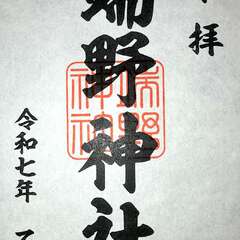 拝
端野神社
令和七年